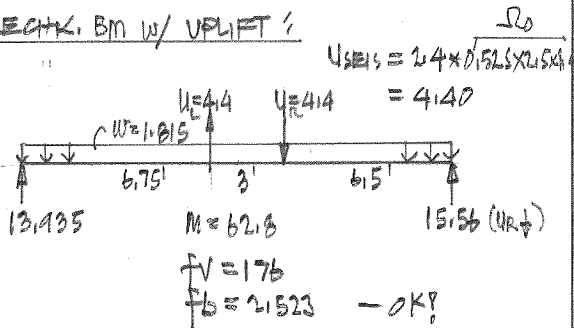 ECHK. BM W/ UPLIFT :
Ω0
USEIS = 2.4*0.525X2.5X4.4
= 4.40
UL=4.4 UR=4.4
W=1.815
6.75' 3' 6.5'
13.935 M=62.8 15.56 (UR↓)
fv=176
fb=2.523 - OK!